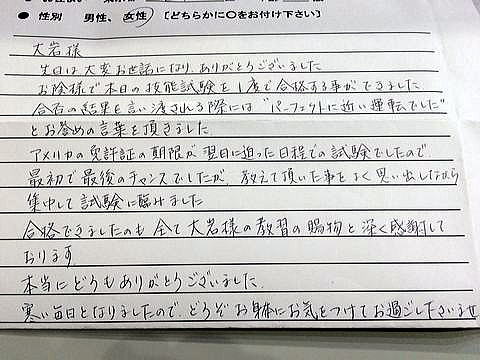 ● 性別　男性、女性　【どちらかに○をお付け下さい】
大岩様
先日は大変お世話になり、ありがとうございました
お陰様で本日の技能試験を1度で合格する事ができました
合否の結果を言い渡される際には“パーフェクトに近い運転でした”
とお誉めの言葉を頂きました
アメリカの免許証の期限が翌日に迫った日程での試験でしたので、
最初で最後のチャンスでしたが、教えて頂いた事をよく思い出しながら
集中して試験に臨めました
合格できましたのも全て大岩様の教習の賜物と深く感謝して
おります
本当にどうもありがとうございました.
寒い毎日となりましたので どうぞお身体にお気をつけてお過ごしくださいませ